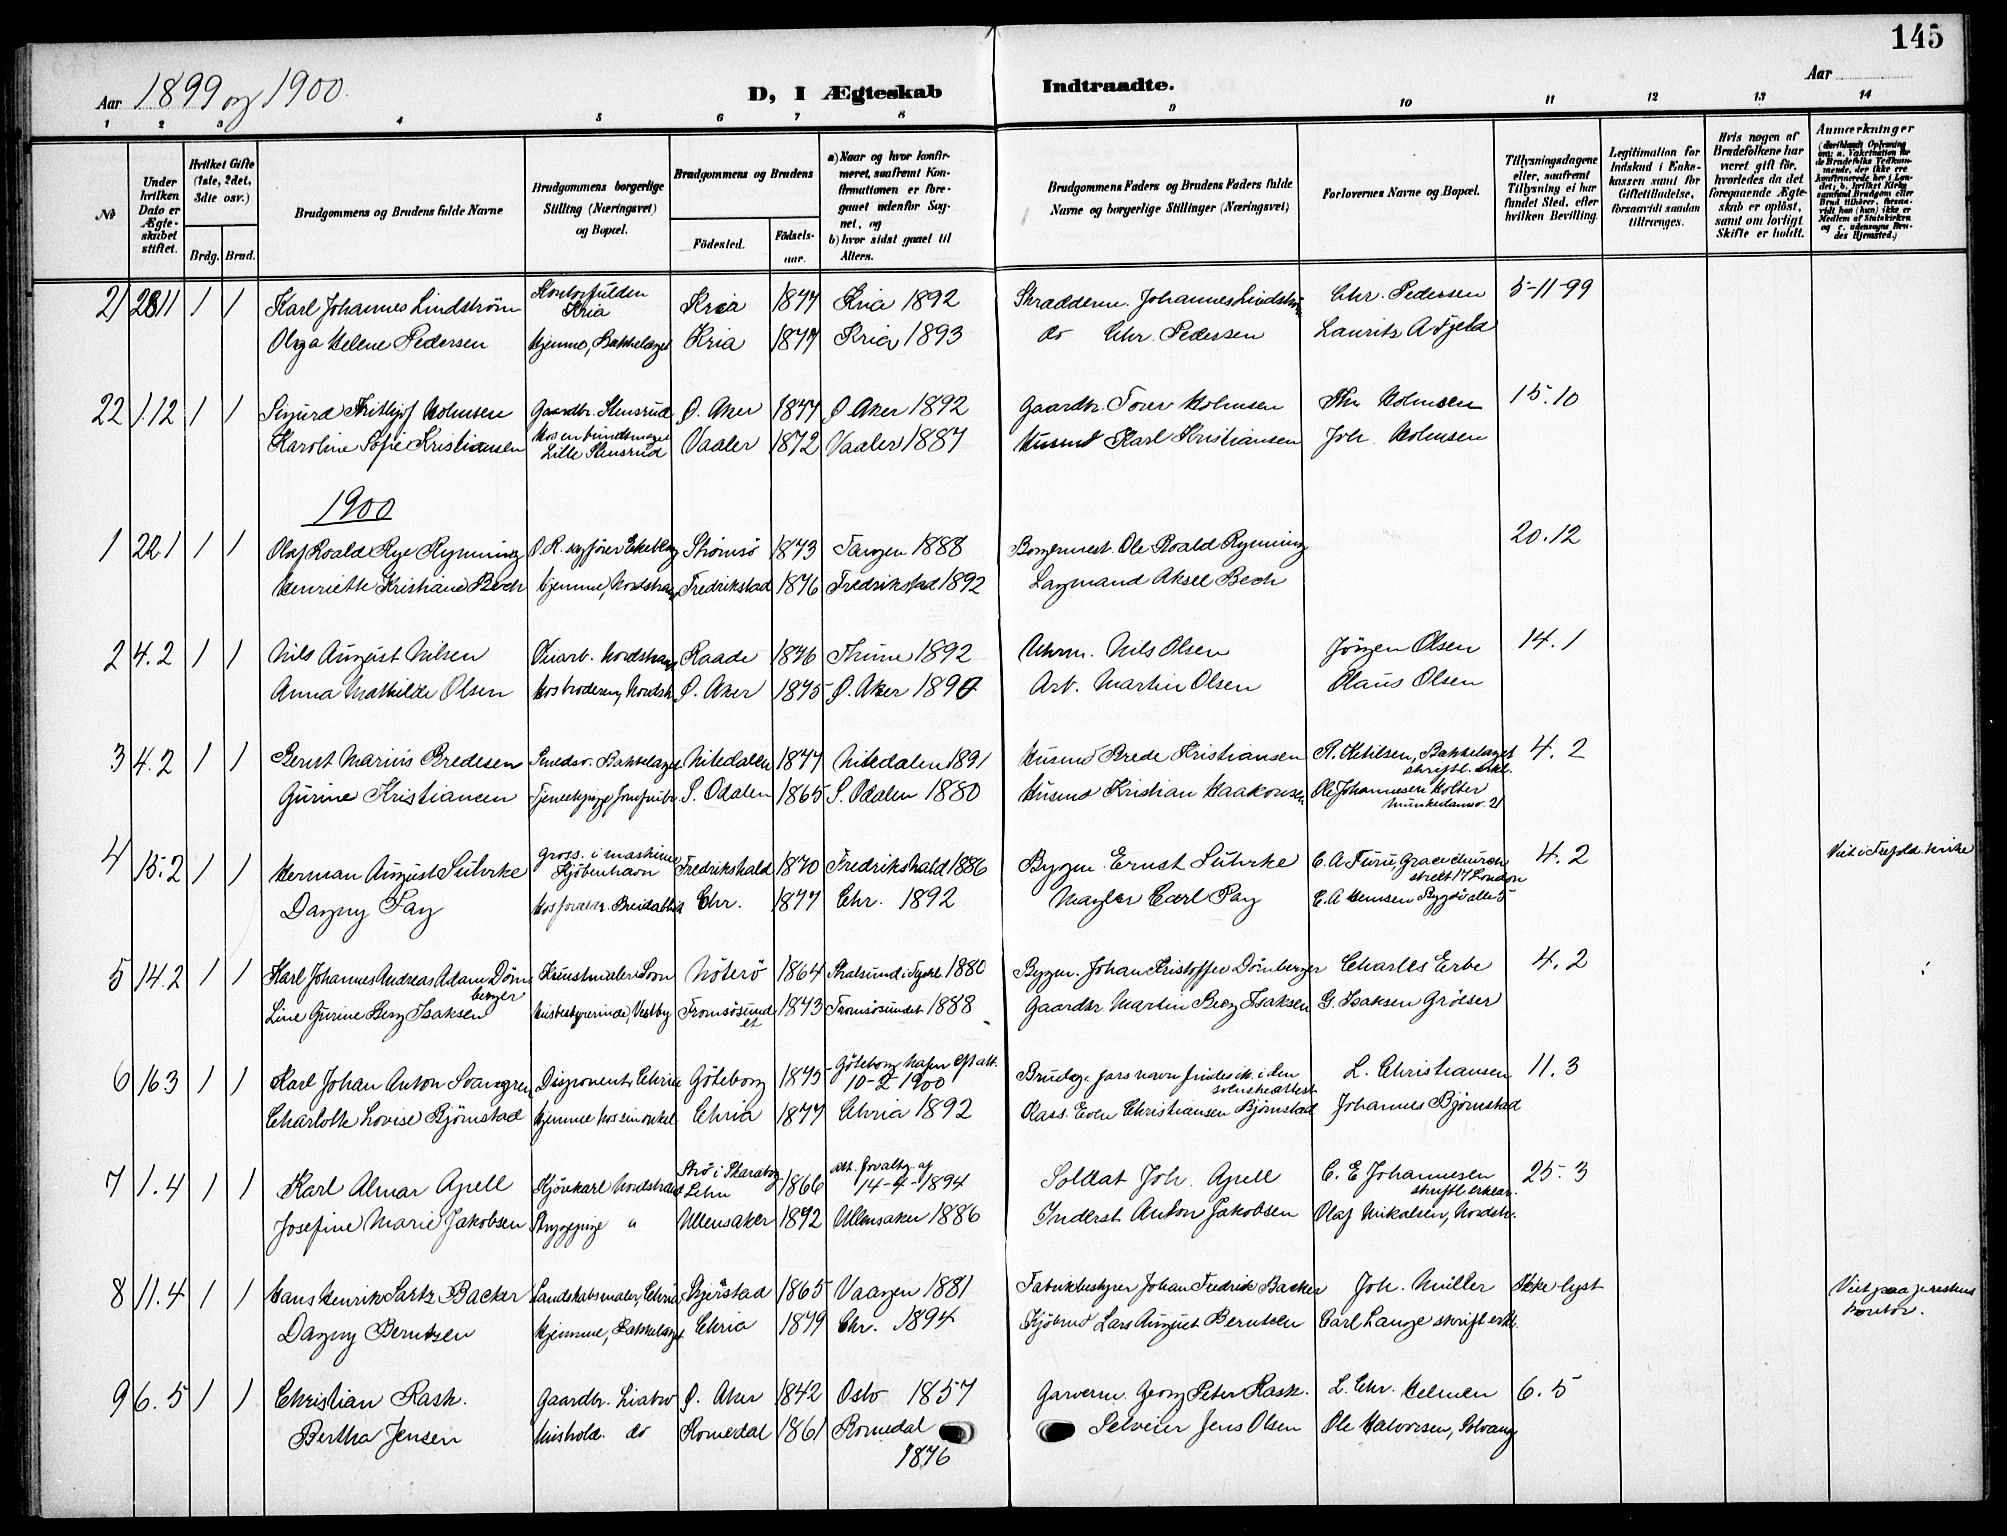 145
Aar 1899 og 1900.
D, I Ægteskab Indtraadte.
Aar
1 2 3 4 5 6 7 8 9 10 11 12 13 14
No
Under hvilken Dato er Ægteskabet stiftet.
Hvilket Gifte (1ste, 2det, 3die osv.)
Brdg. Brud.
Brudgommens og Brudens fulde Navne
Brudgommens borgerlige Stilling (Næringsvei) og Bopæl.
Brudgommens og Brudens
Födested. Födselsaar.
a) Naar og hvor konfirmeret, saafremt Konfirmationen er foregaaet udenfor Sognet, og
b) hvor sidst gaaet til Alters.
Brudgommens Faders og Brudens Faders fulde Navne og borgerlige Stillinger (Næringsvei)
Forlovernes Navne og Bopæl.
Tillysningsdagene eller, saafremt Tillysning ei har fundet Sted, efter hvilken Bevilling.
Legitimation for Indskud i Enkekassen samt for Giftetilladelse, forsaavidt saadan tiltrænges.
Hvis nogen af Brudefolkene har været gift för, hvorledes da det foregaaende Ægteskab er oplöst, samt om lovligt Skifte er holdt.
Anmærkninger
21 28 11 1 1 Karl Johannes Lindström Kontorfuldm. Kria Kria 1877 Kria 1892 Skrædderm. Johannes Lindström Chr. Pedersen 5-11-99
Olga Helene Pedersen Hjemme, Bækkelaget Kria 1877 Kria 1893 do Chr. Pedersen Laurits A Fjeld
22 1.12 1 1 Sigurd Frithjof Holmsen Gaardbr. Stensrud Ø. Aker 1877 Ø Aker 1892 Gaardbr. Torer Holmsen Thv Holmsen 15.10
Karoline Sofie Kristiansen Lille Stensrud Vaaler 1872 Vaaler 1887 Husmd Karl Kristiansen Joh. Holmsen
1900
1 22 1 1 1 Olaf Roald Rye Rynning O.R. sagfører Ekeberg Strömsö 1873 Tangen 1888 Borgermest. Ole Roald Rynning 20.12
Henriette Kristiane Bech hjemme, Nordstrand Fredrikstad 1876 Fredrikstad 1892 Lagmand Aksel Bech
2 4.2 1 1 Nils August Nilsen Nordstrand Raade 1876 Thune 1892 Uhrm. Nils Olsen Jörgen Olsen 14.1
Anna Mathilde Olsen Hos broderen, Nordstr. Ø. Aker 1875 Ø. Aker 1890 Arb. Martin Olsen Olaus Olsen
3 4.2 1 1 Bernt Marius Bredesen Smedsv. Bækkelaget Nitedalen 1877 Nitedalen 1891 Husmd Brede Kristiansen R. Ketilsen, Bækkelaget skriftl. erkl. 4.2
Gurine Kristiansen Tjenestepige S. Odalen 1865 S. Odalen 1880 Husmd Kristian Haakonsen Ole Johannesen Holter Munkedamsv. 21
4 15.2 1 1 Herman August Suhrke Gross. i maskiner Kjöbenhavn Fredrikshald 1870 Fredrikshald 1886 Bygm. Ernst Suhrke C. A Furu, Gracechurch street 17 London 4.2 Viet i Trefold. kirke
Dagny Fay Hos foreldr. Breidablik Chr. 1877 Chr. 1892 Mægler Carl Fay E. A Hemsen Bygdö alle 5
5 14.2 1 1 Karl Johannes Andreas Adam Dörnberger Kunstmaler Soon Nöterö 1864 Stralsund i Tyskl. 1880 Bygm. Johan Kristoffer Dörnberger Charles Erbe 4.2
Line Gurine Berg Isaksen Husbestyrerinde, Vestby Tromsösundet 1873 Tromsösundet 1888 Gaardbr. Martin Berg Isaksen G. Isaksen Gröeser
6 16 3 1 1 Karl Johan Anton Svangren Disponent, Chria Göteborg 1875 Göteborg Hafen eft. att. 10-2 1900 Brudg. fars navn findes ik. i den svenske attest L. Christiansen 11.3
Charlotte Lovise Björnstad hjemme hos sin onkel Chria 1877 Chria 1892 Klass. Even Christiansen Björnstad Johannes Björnstad
7 1.4 1 1 Karl Almar Apell Kjörekarl Nordstrand Strö i Skaraborg Lehn 1866 att. forvaltn. af 14-4-1894 Soldat Joh. Apell C. E Johannesen skriftl erklær. 25.3
Josefine Marie Jakobsen Strygepige " Ullensaker 1872 Ullensaker 1886 Inderst Anton Jakobsen Olaf Mikalsen, Nordstr.
8 11.4 1 1 Hans Henrik Sartz Backer Landskabsmaler, Chria Skjerstad 1865 Vaagen 1881 Fabrikbestyrer Johan Fredrik Backer Joh. Müller Ikke lyst Viet paa prestens kontor.
Dagny Berntsen Hjemme, Bækkelaget Chria 1879 Chr. 1894 Kjöbmd Lars August Berntsen Carl Lange skriftl erkl.
9 6.5 1 1 Christian Rask. Gaardbr. Liabro Ø. Aker 1842 Oslo 1857 Garverm. Georg Peter Rask. L. Chr. Helmen 6.5
Bertha Jensen Hushold. do Romedal 1861 Romedal 1876 Selveier Jens Olsen Ole Halvorsen, Solvang